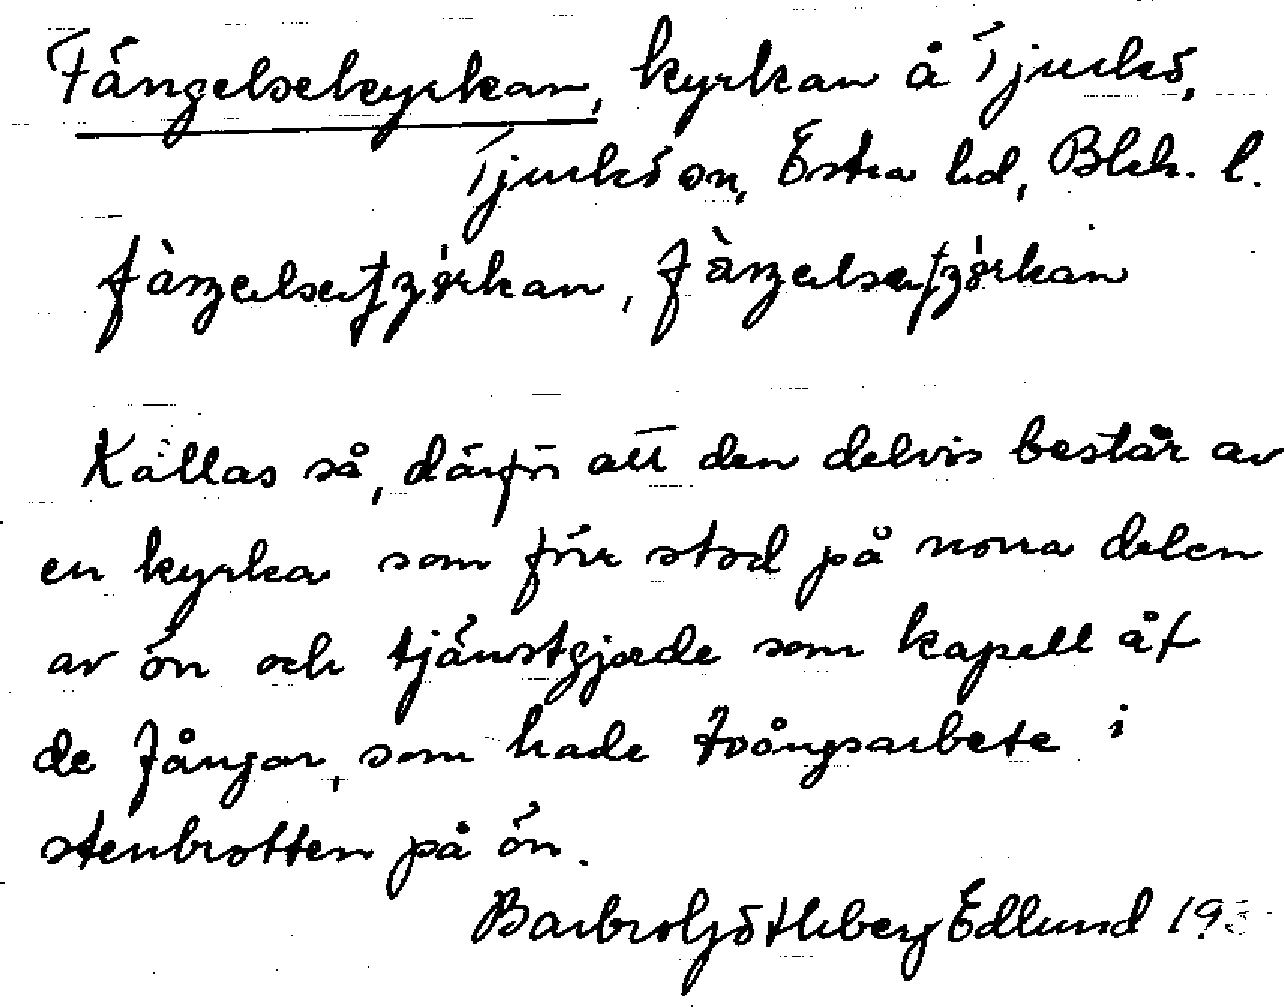 Fängelsekyrkan, kyrkan å Tjurkö,
Tjurkö sn, Östra hd, Blek. l.
Kallas så, därför att den delvis består av
en kyrka som förr stod på norra delen
av ön och tjänstgjorde som kapell åt
de fångar, som hade tvångsarbete i
stenbrotten på ön.
Barbro Götleberg Edlund